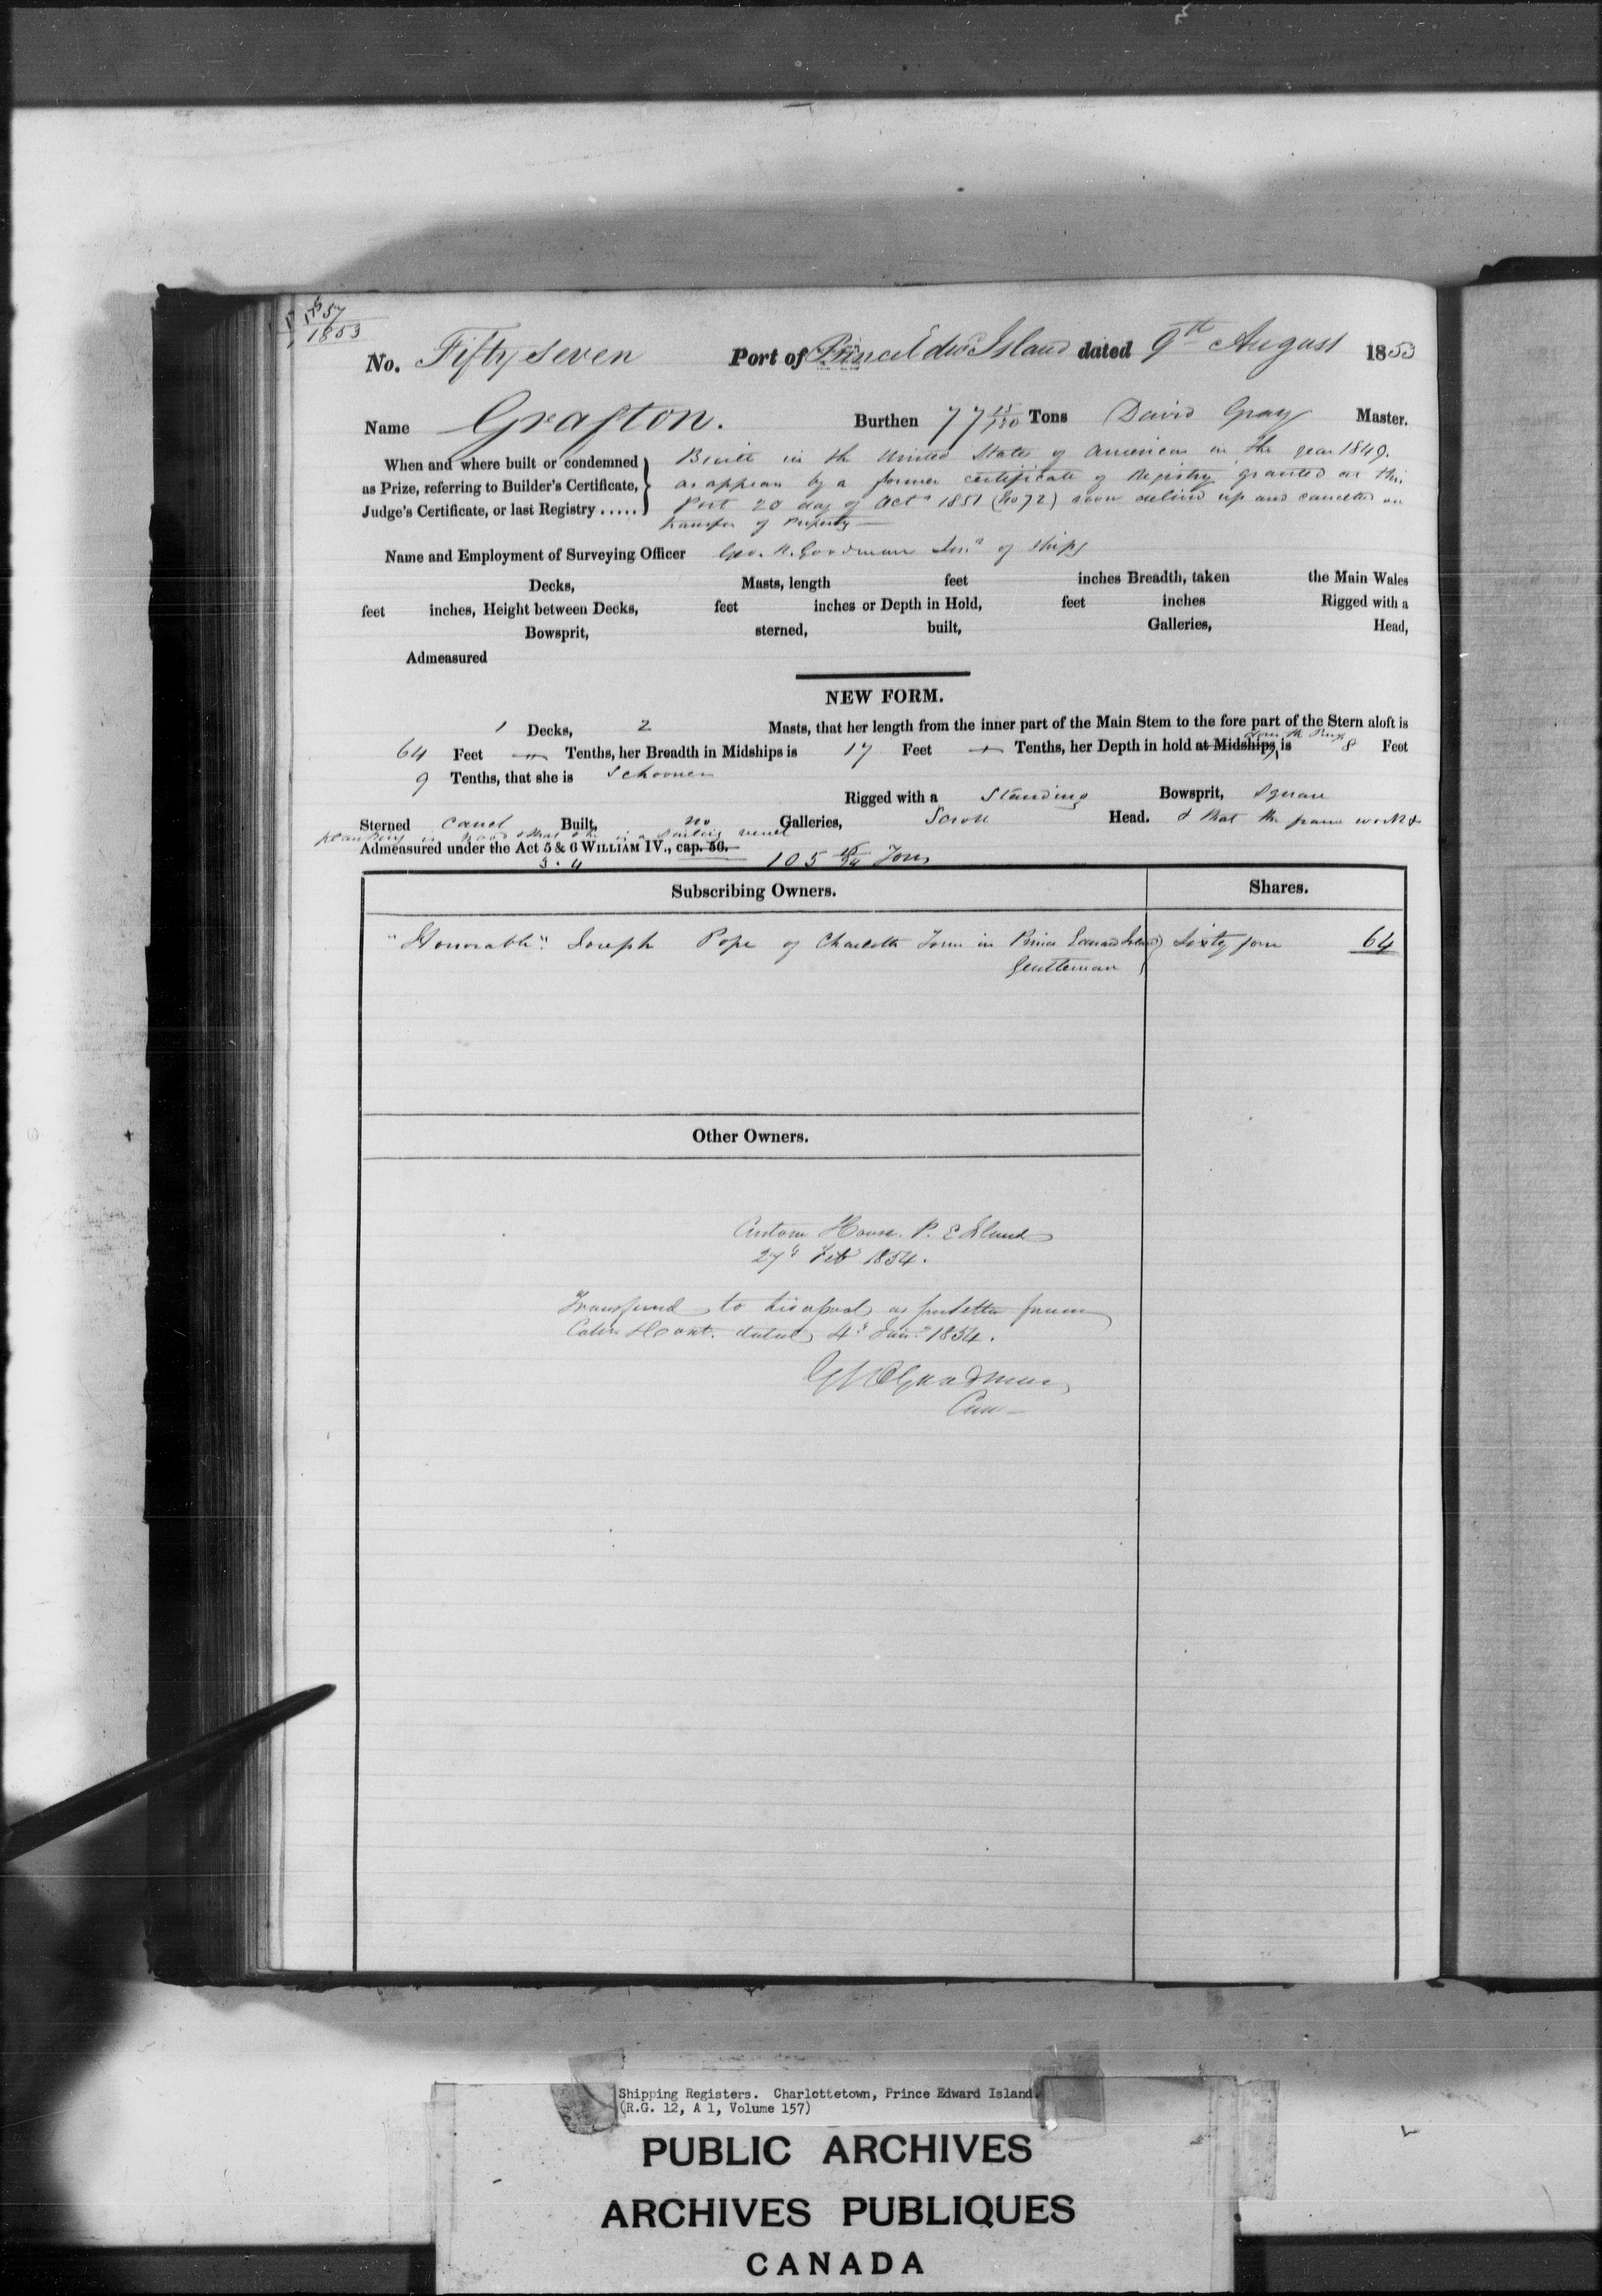 57
1853
No. Fifty seven Port of Prince Edwd Island dated 9th August 1853
Name Grafton. Burthen 77 15/130 Tons David Gray Master.
When and where built or condemned as Prize, referring to Builder's Certificate, Judge's Certificate, or last Registry .....
Built in the United States of America in the year 1849.
as appears by a former certificate of Registry granted at this
Port 20 day of Octr 1851 (No 72) now up and cancelled on
transfer of Property
Name and Employment of Surveying Officer Geo. R. Goodman of Ships
Decks, Masts, length feet inches Breadth, taken the Main Wales
feet inches, Height between Decks, feet inches or Depth in Hold, feet inches Rigged with a
Bowsprit, sterned, built, Galleries, Head,
Admeasured
NEW FORM.
1 Decks, 2 Masts, that her length from the inner part of the Main Stem to the fore part of the Stern aloft is
64 Feet Tenths, her Breadth in Midships is 17 Feet Tenths, her Depth in hold at Midships is 8 Feet
9 Tenths, that she is Schooner
Rigged with a Standing Bowsprit, Square
Sterned Carvel Built, no Galleries, Scroll Head. & that the frame work &
planking is wood & that she is a sailing vessel
Admeasured under the Act 5 & 6 WILLIAM IV., cap. 56.
3 . 4 105 Tons
Subscribing Owners. Shares.
"Honorable" Joseph Pope of Charlotte Town in Prince Edward Island Sixty four 64
Gentleman
Other Owners.
Custom House. P. E Island
27th Feb 1854.
Transferred to Liverpool as per letter from
dated 4th Jany 1854.
GR Goodman
Shipping Registers. Charlottetown, Prince Edward Island
(R.G. 12, A 1, Volume 157)
PUBLIC ARCHIVES
ARCHIVES PUBLIQUES
CANADA